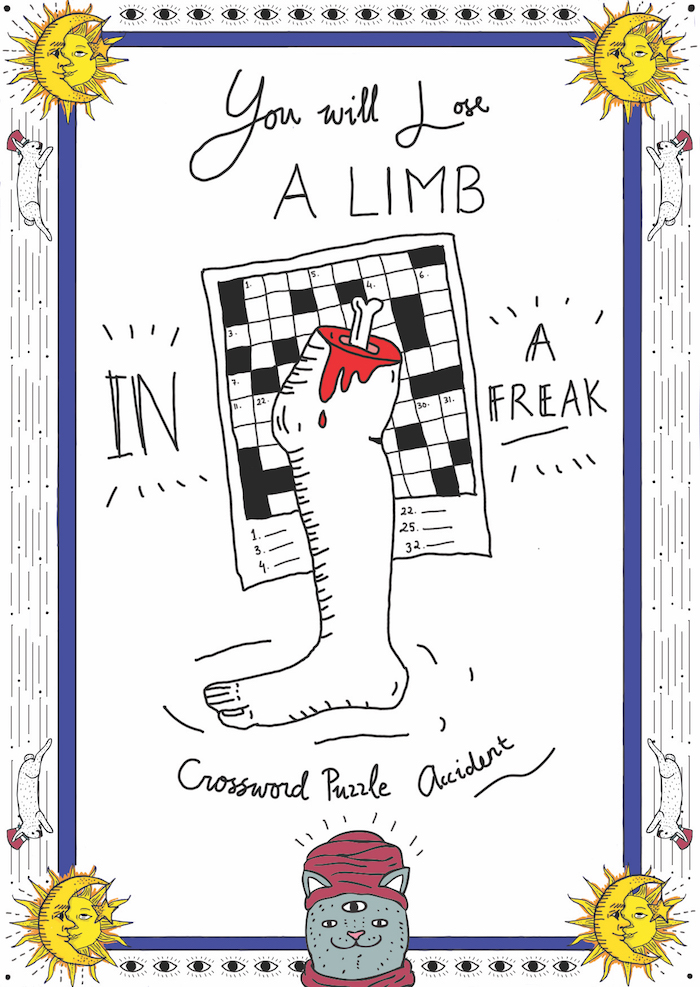 You will Lose
A LIMB
1. 5. 4. 6.
3.
IN
A
FREAK
7.
11. 22. 30. 31.
1. 22.
3. 25.
4. 32.
Crossword Puzzle Accident